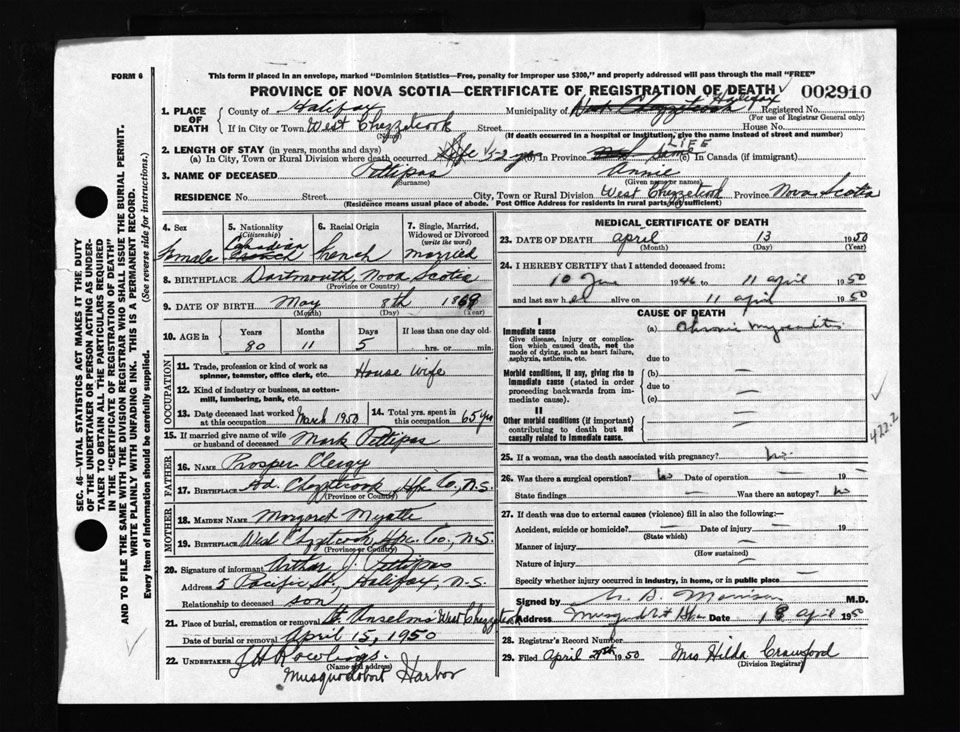 FORM 6
This form if placed in an envelope, marked "Dominion Statistics—Free, penalty for improper use $300," and properly addressed will pass through the mail "FREE"
PROVINCE OF NOVA SCOTIA—CERTIFICATE OF REGISTRATION OF DEATH 002910
1. PLACE OF DEATH
County of Halifax Municipality of West Chezzetcook Halifax Registered No.
(For use of Registrar General only)
If in City or Town West Chezzetcook Street House No.
(Name) (If death occurred in a hospital or institution, give the name instead of street and number)
2. LENGTH OF STAY (in years, months and days) LIFE
(a) In City, Town or Rural Division where death occurred 52 yrs (b) In Province (c) In Canada (if immigrant)
3. NAME OF DECEASED Pettipas Annie
(Surname) (Given name or names)
RESIDENCE No. Street City, Town or Rural Division West Chezzetcook Province Nova Scotia
(Residence means usual place of abode. Post Office Address for residents in rural parts not sufficient)
4. Sex Female
5. Nationality (Citizenship) Canadian French
6. Racial Origin French
7. Single, Married, Widowed or Divorced (write the word) married
8. BIRTHPLACE Dartmouth, Nova Scotia
(Province or Country)
9. DATE OF BIRTH May 8th 1869
(Month) (Day) (Year)
10. AGE in Years Months Days If less than one day old
80 11 5 hrs. or min.
OCCUPATION
11. Trade, profession or kind of work as spinner, teamster, office clerk, etc. House Wife
12. Kind of industry or business, as cotton-mill, lumbering, bank, etc.
13. Date deceased last worked at this occupation March 1950
14. Total yrs. spent in this occupation 65 yrs
15. If married give name of wife or husband of deceased Mark Pettipas
FATHER
16. NAME Prosper Clergy
17. BIRTHPLACE Hd. Chezzetcook Hfx Co., N.S.
(Province or Country)
MOTHER
18. MAIDEN NAME Margaret Myatte
19. BIRTHPLACE West Chzzetcook Hfx. Co., N.S.
(Province or Country)
20. Signature of informant Arthur J. Pettipas
Address 5 Pacific St., Halifax, N.S.
Relationship to deceased son
21. Place of burial, cremation or removal St. Anselms West Chezzetcook
Date of burial or removal April 15, 1950
22. UNDERTAKER J H Rowlings.
(Name and address)
Musquodoboit Harbor
MEDICAL CERTIFICATE OF DEATH
23. DATE OF DEATH April 13 1950
(Month) (Day) (Year)
24. I HEREBY CERTIFY that I attended deceased from:
10 1946 to 11 april 1950
and last saw her alive on 11 april 1950
CAUSE OF DEATH
I
Immediate cause
Give disease, injury or complication which caused death, not the mode of dying, such as heart failure, asphyxia, asthenia, etc.
(a) Chronic myocarditis
due to
Morbid conditions, if any, giving rise to immediate cause (stated in order proceeding backwards from immediate cause).
(b)
due to
(c)
II
Other morbid conditions (if important) contributing to death but not causally related to immediate cause.
422.2
25. If a woman, was the death associated with pregnancy? no
26. Was there a surgical operation? no Date of operation 19
State findings Was there an autopsy? no
27. If death was due to external causes (violence) fill in also the following:—
Accident, suicide or homicide? Date of injury 19
(State which)
Manner of injury
(How sustained)
Nature of injury
Specify whether injury occurred in industry, in home, or in public place
Signed by Morrison M.D.
Address Date 18 april 1950
28. Registrar's Record Number
29. Filed April 27th 1950 Mrs Hilda Crawford
(Division Registrar)
SEC. 46—VITAL STATISTICS ACT MAKES IT THE DUTY
OF THE UNDERTAKER OR PERSON ACTING AS UNDER-
TAKER TO OBTAIN ALL THE PARTICULARS REQUIRED
IN THE "CERTIFICATE OF REGISTRATION OF DEATH"
AND TO FILE THE SAME WITH THE DIVISION REGISTRAR WHO SHALL ISSUE THE BURIAL PERMIT.
WRITE PLAINLY WITH UNFADING INK. THIS IS A PERMANENT RECORD.
Every item of information should be carefully supplied. (See reverse side for instructions.)